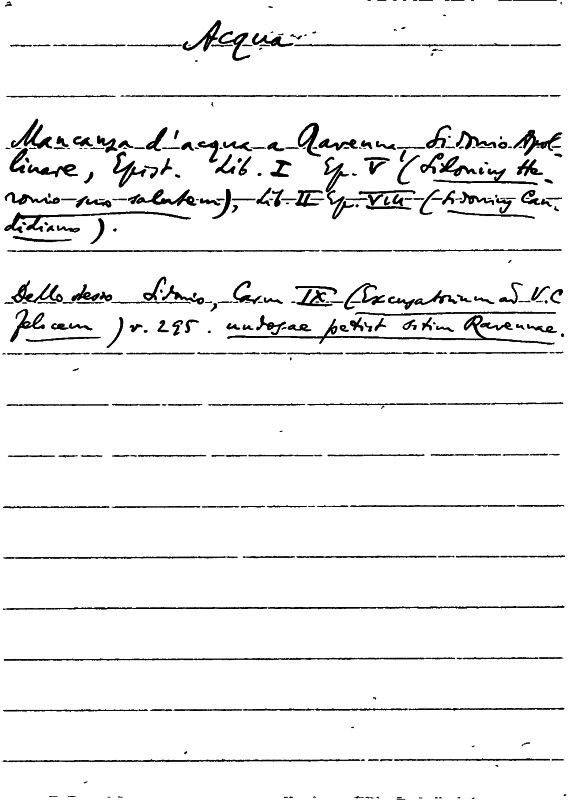 Acqua
Mancanza d'acqua a Ravenna, Sidonio Apol-
linare, Epist. Lib. I Ep. V (Sidonius He-
ronio suo salutem), Lib. II Ep. VIII (Sidonius Can-
didiano).
Dello stesso Sidonio, Carm IX (Excusatorium ad V.C
Felicem) v. 295. undosae petiit sitim Ravennae.